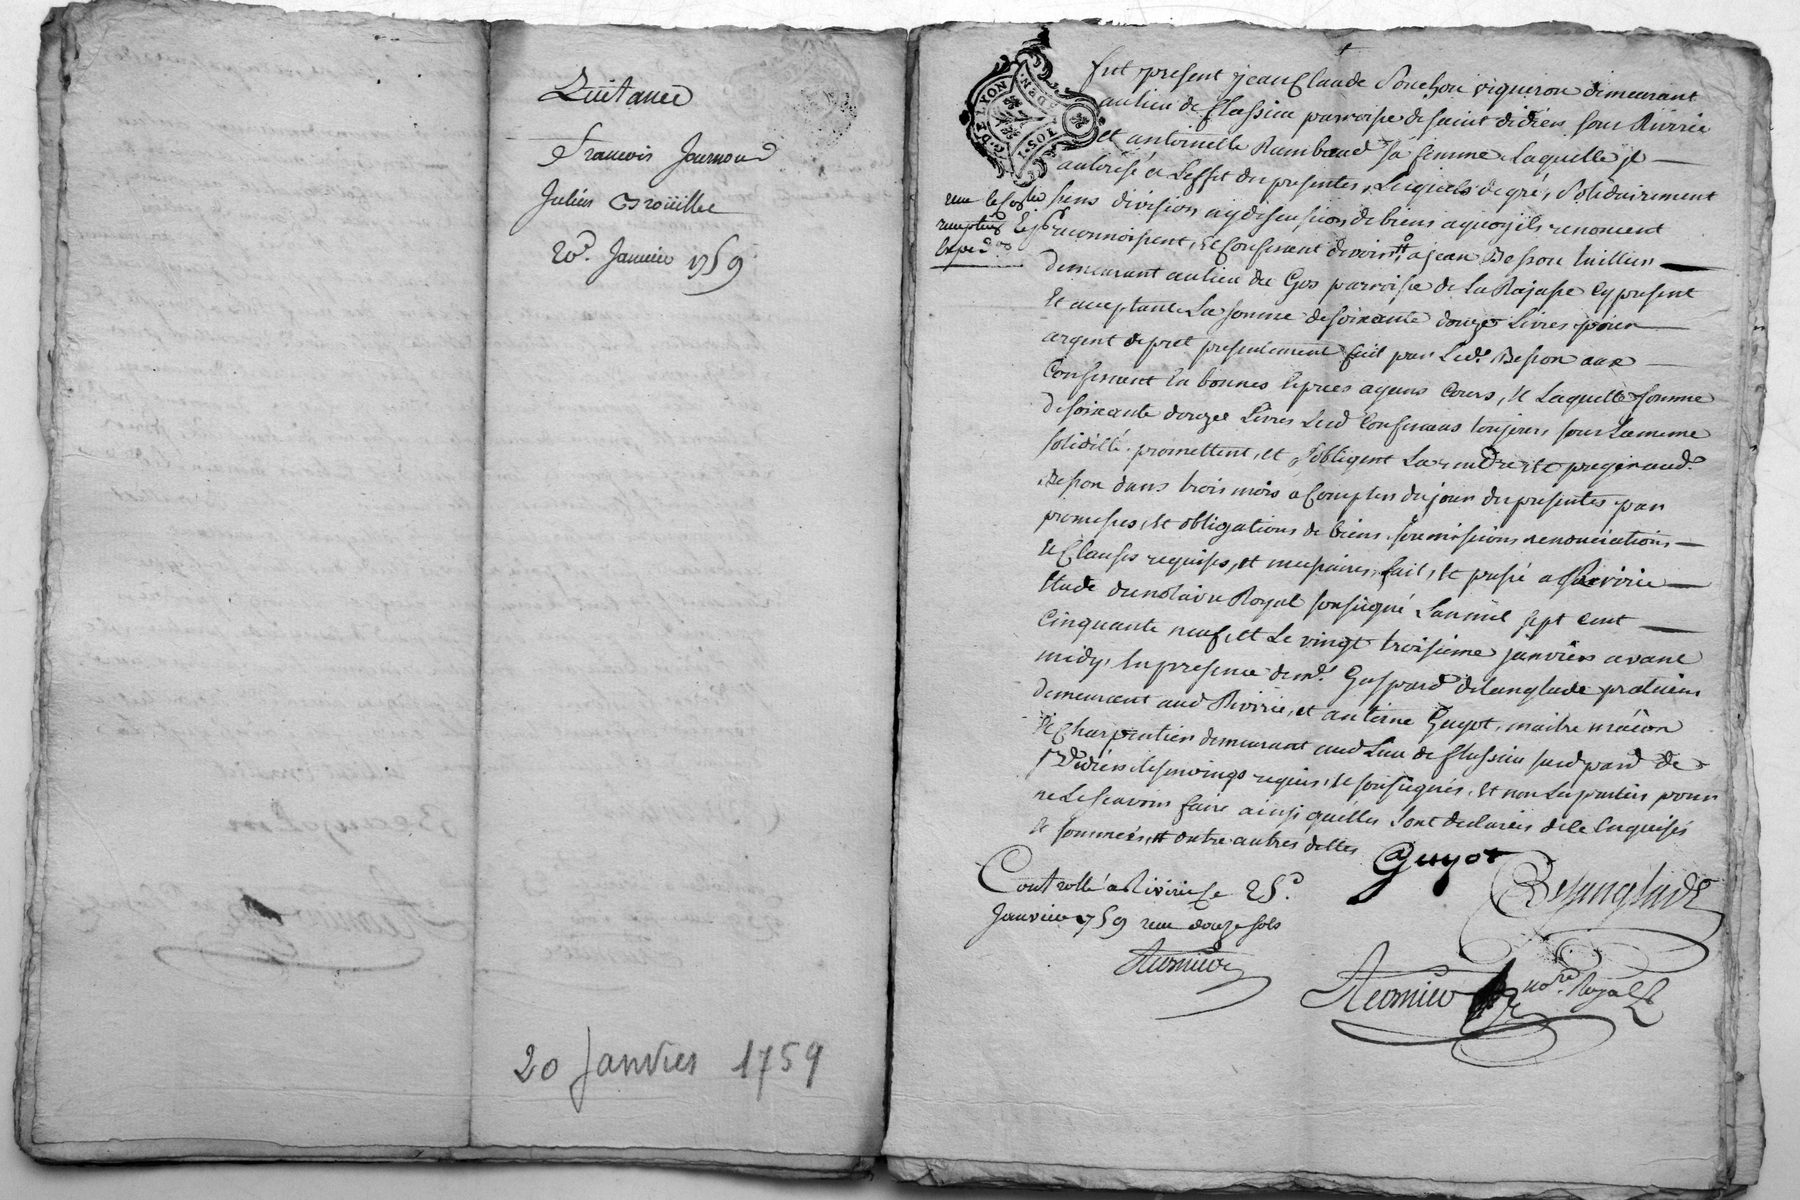 Quittance
Francois Journoud
Julien Broüillet
20e. Janvier 1759
20 Janvier 1759
G. DE LYON
fut present jean Claude Souchon vigneron demeurant
au lieu de flassieu parroisse de saint didier sous Rivirie
et antoinette Rambaud sa femme laquelle jl
autorisé a L'effet des presentes, Lesquels de gré, solidairement
sans division ny discussion de biens a quoy ils renoncent
reconnoissent, et Confessent devoir a jean Besson tuillier
demeurant au lieu du Gas parroisse de La Rajasse cy present
Et acceptant La somme de soixante douze Livres pour
argent de pret presentement fait par Led. Besson aux
Confessant En bonnes Especes ayans Cours, Et Laquelle somme
de soixante douze Livres Lesd Confessans toujours sous La meme
solidité promettent, et s'obligent La rendre, et payer aud.
Besson dans trois mois a Compter du jour des presentes par
promesses, et obligations de biens, soumissions renonciations
et Clauses requises, et necessaires, fait, et passé a Rivirie
Etude du notaire Royal soussigné L'an mil sept cent
Cinquante neuf, et Le vingt troisieme janvier avant
midy, En presence de mr. Gaspard delanglade praticien
demeurant aud Rivirie, et antoine Guyot, maitre maçon
et Charpentier demeurant aud Lieu de flassieu susd parr de
st Didier temoings requis, et soussignés, et non Les parties pour
ne Le scavoir faire ainsi qu'elles l'ont declarés de ce Enquises
et sommeés, et outre autres delles
Guyot
Delanglade
Controllé a Rivirie le 25e.
Janvier 1759 reçu douze sols
nore. Royal